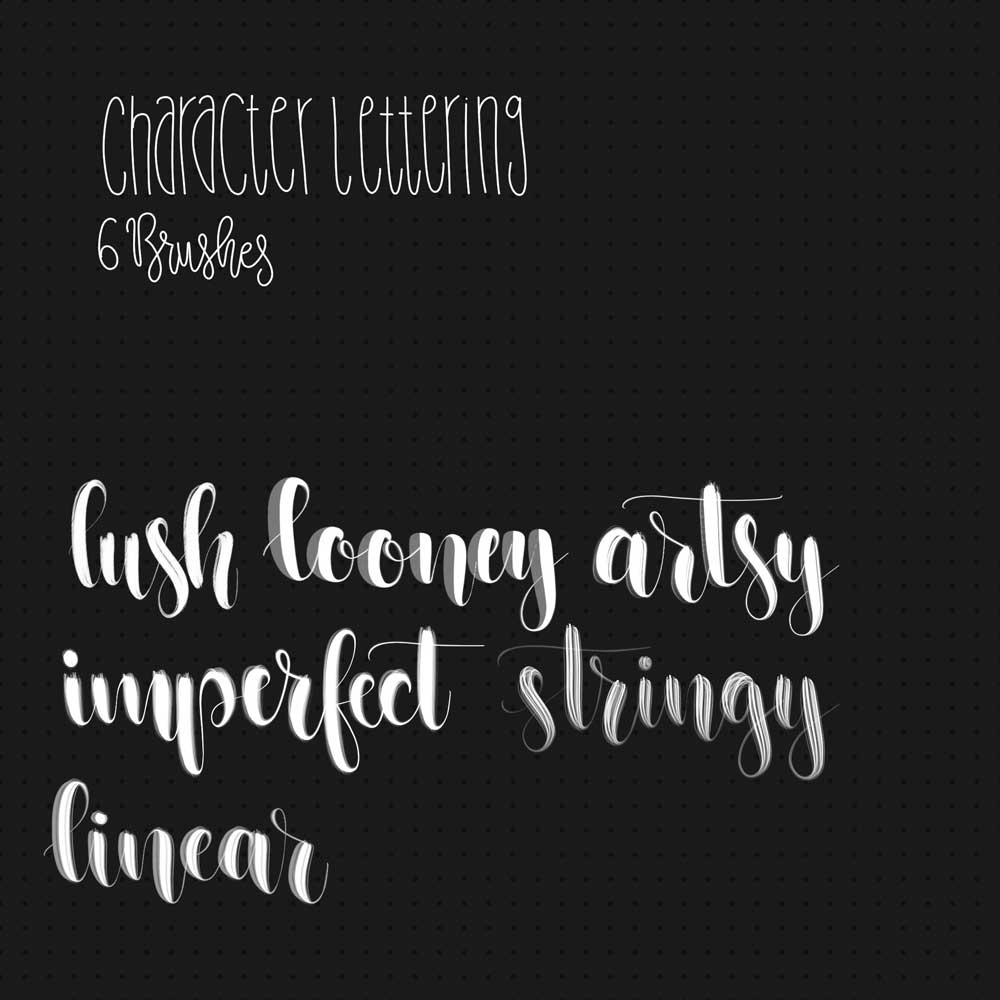 Character Lettering
6 Brushes
lush looney artsy
imperfect stringy
linear